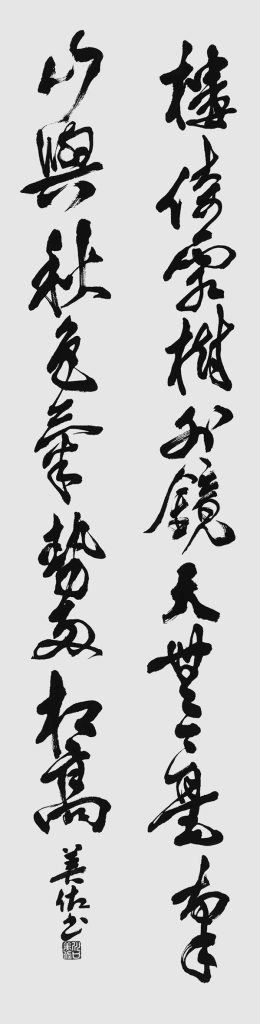 樓倚霜樹外鏡天無一毫南
山與秋色氣勢兩相高
美佑书